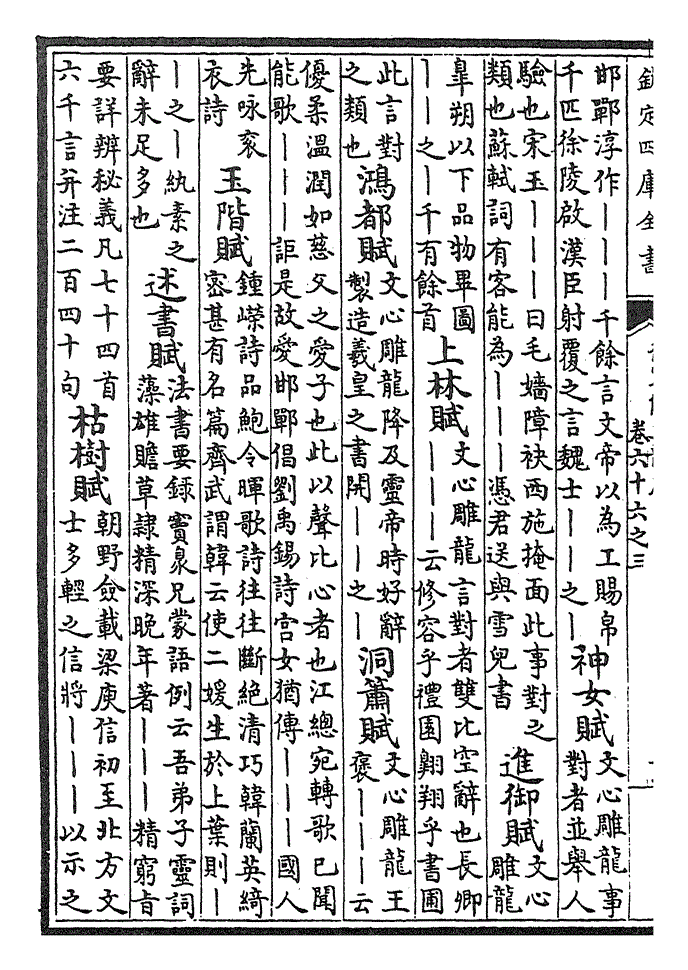 欽定四庫全書
卷六十六之三
邯鄲淳作｜｜｜千餘言文帝以為工賜帛
千匹徐陵啟漢臣射覆之言魏士｜｜之｜
神女賦
文心雕龍事
對者並舉人
驗也宋玉｜｜｜曰毛嬙障袂西施掩面此事對之
類也蘇軾詞有客能為｜｜｜憑君送與雪兒書
進御賦
文心
雕龍
臯朔以下品物畢圖
｜｜之｜千有餘首
上林賦
文心雕龍言對者雙比空辭也長卿
｜｜｜云修容乎禮園翺翔乎書圃
此言對
之類也
鴻都賦
文心雕龍降及靈帝時好辭
製造羲皇之書開｜｜之｜
洞簫賦
文心雕龍王
褒｜｜｜云
優柔溫潤如慈父之愛子也此以聲比心者也江總宛轉歌已聞
能歌｜｜｜詎是故愛邯鄲倡劉禹錫詩宮女猶傳｜｜｜國人
先咏衮
衣詩
玉階賦
鍾嶸詩品鮑令暉歌詩往往斷絕清巧韓蘭英綺
密甚有名篇齊武謂韓云使二媛生於上葉則｜
｜之｜紈素之
辭未足多也
述書賦
法書要錄竇臮兄蒙語例云吾弟子靈詞
藻雄贍草隷精深晚年著｜｜｜精窮旨
要詳辨秘義凡七十四首
六千言并注二百四十句
枯樹賦
朝野僉載梁庾信初至北方文
士多輕之信將｜｜｜以示之